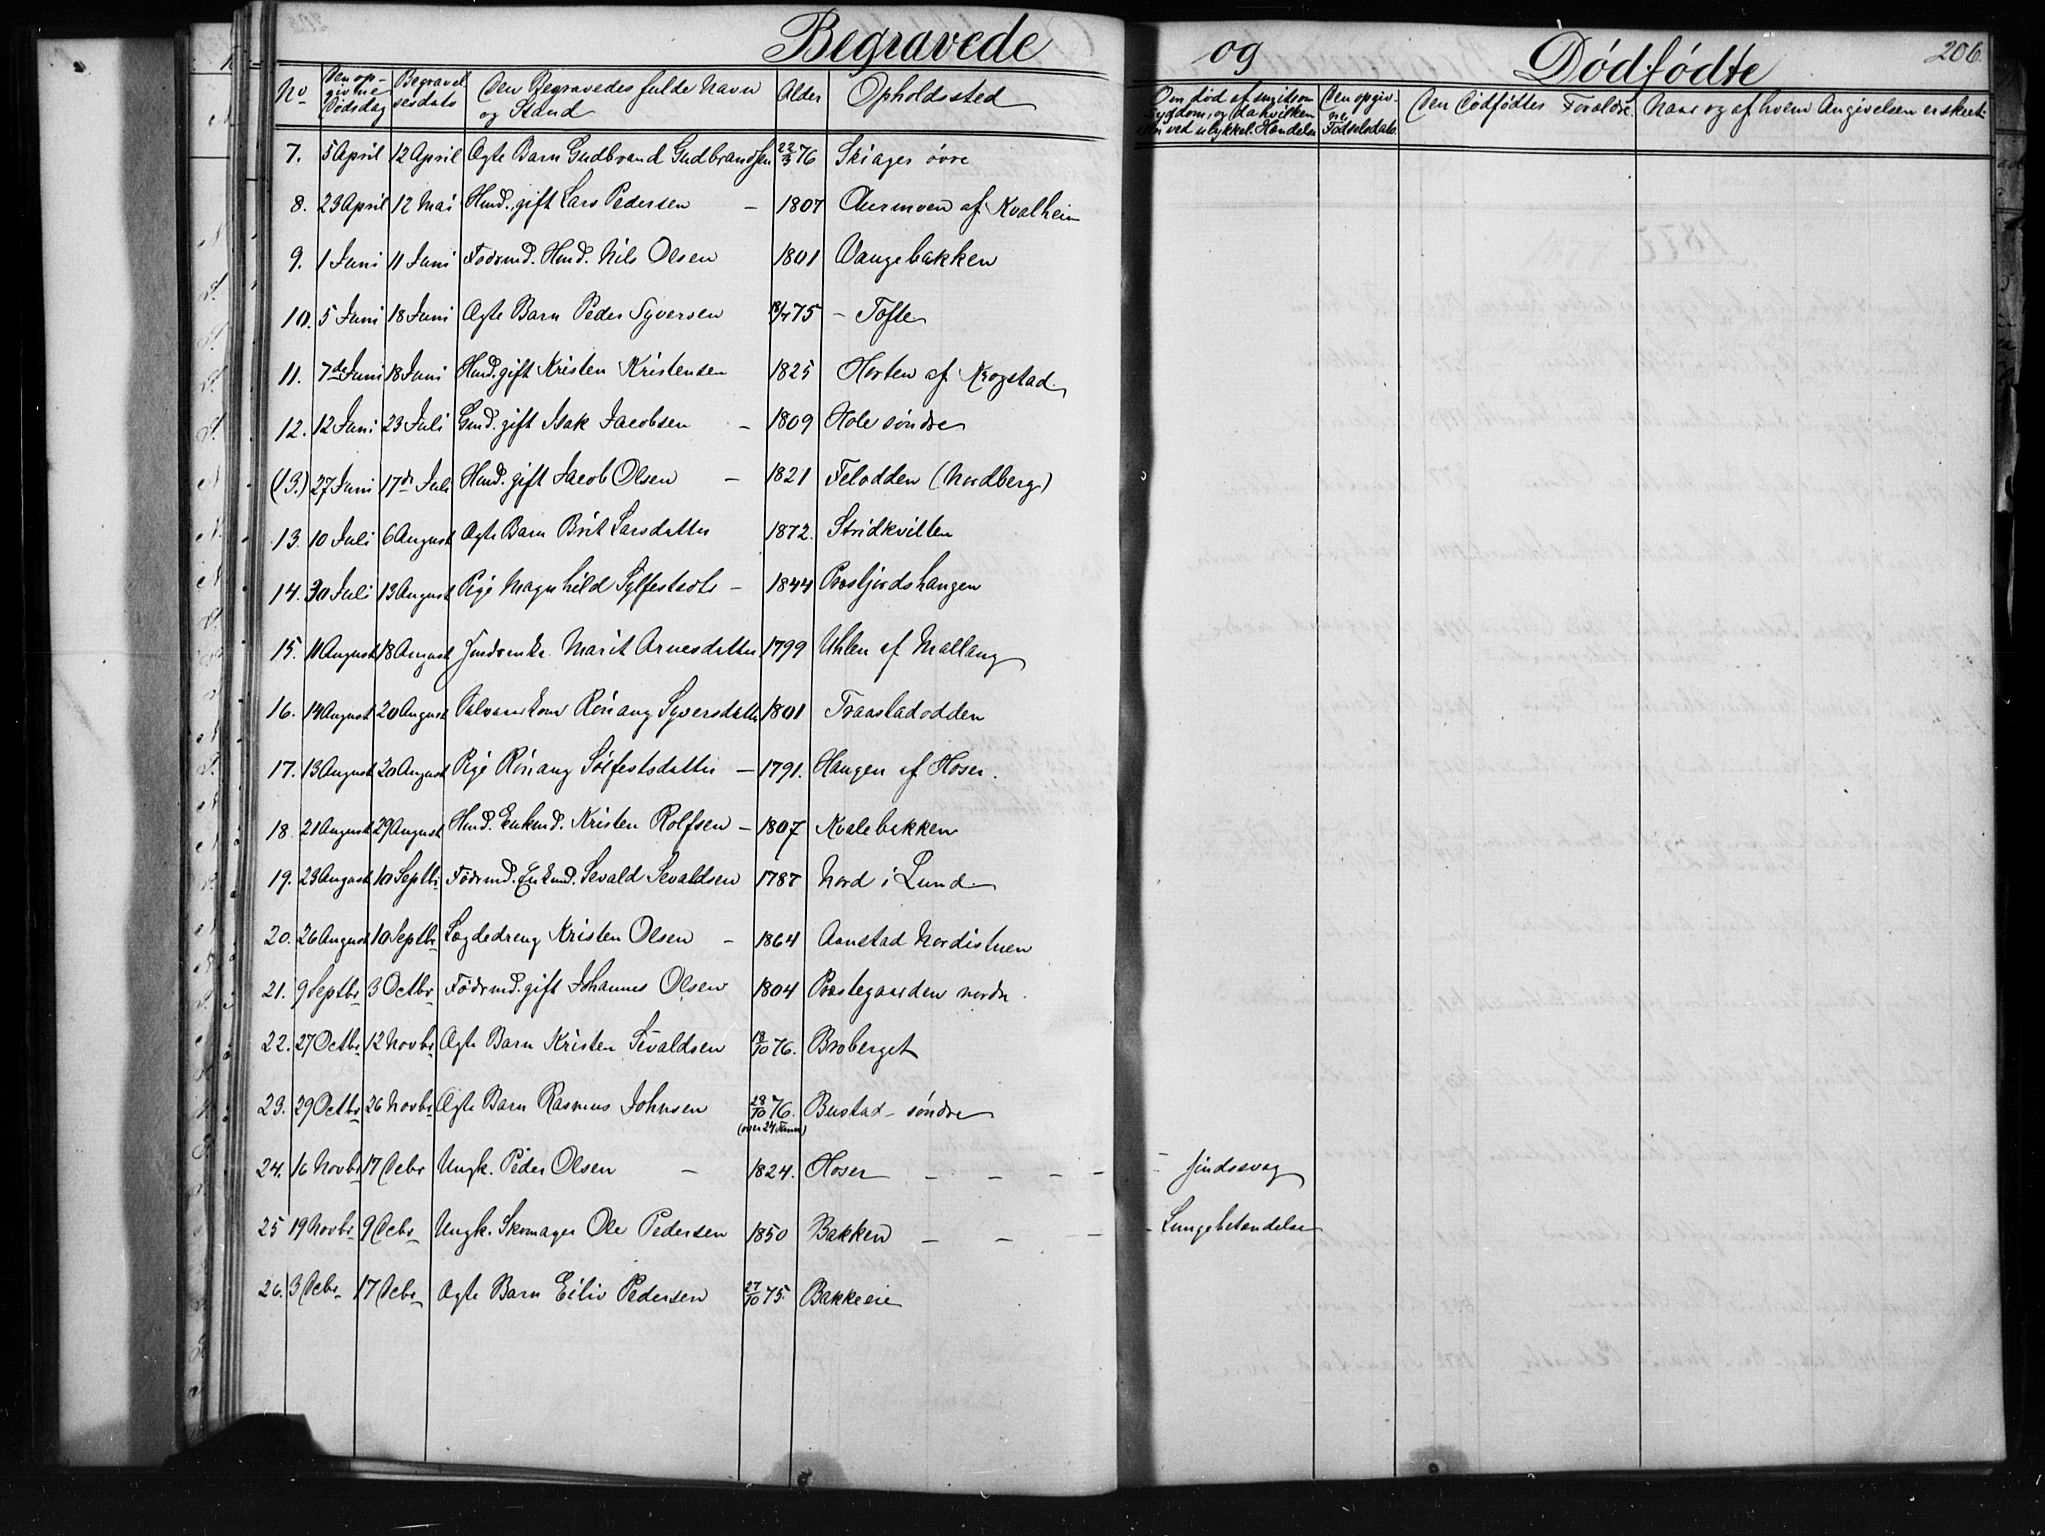 Begravede og Dødfødte 206.
No Den opgivne Dødsdag Begravelsesdato Den Begravedes fulde Navn og Stand Alder Opholdssted Om død af smitsom Sygdom, og da hvilken eller ved ulykkel. Hændelse Den opgivne Fødselsdato Den Dødfødtes Forældre. Naar og af hvem Angivelsen er skeet.
7. 5 April 12 April Ægte Barn Gudbrand Gudbrandsen 22/3 76 Skiager øvre
8. 23 April 12 Mai Hmd. gift Lars Pedersen – 1807 Aurmoen af Kvalheim
9. 1 Juni 11 Juni Födrmd. Hmd. Nils Olsen 1801 Vangebakken
10. 5 Juni 18 Juni Ægte Barn Peder Syversen 75 – Tofte
11. 7de Juni 18 Juni Hmd. gift Kristen Kristensen 1825 Horten af Krogstad
12. 12 Juni 23 Juli Gmd. gift Isak Jacobsen – 1809 Hole søndre
(13.) 27 Juni 17de Juli Hmd. gift Jacob Olsen – 1821 Felodden (Nordberg)
13. 10 Juli 6 August Ægte Barn Brit Larsdatter 1872. Stridkvilten
14. 30 Juli 13 August Pige Magnhild Sylfestsdtr – 1844 Prestjordshaugen
15. 11 August 18 August Indrenke. Marit Arnesdatter 1799 Uhlen af Mallang
16. 14 August 20 August Rönaug Syversdatter 1801 Fraastadodden
17. 13 August 20 August Pige Rönaug Sölfestsdatter – 1791. Haugen af Hoser.
18. 21 August 29 August Hmd. Enkmd. Kristen Rolfsen – 1807 Kvalebakken
19. 23 August 10 Septbr Födrmd. Enkmd. Sevald Sevaldsen 1787 Nord i Lund
20. 26 August 10 Septbr Lægdedreng Kristen Olsen – 1864 Aanstad Nordistuen
21. 9 Septbr 3 Octbr Födrmd. gift Johannes Olsen 1804 Præstegaarden nordre.
22. 27 Octbr 12 Novbr Ægte Barn Kristen Sevaldsen 13/10 76. Broberget
23. 29 Octbr 26 Novbr Ægte Barn Rasmus Johnsen 28/10 76. Bustad – søndre
(over 24 Timer)
24. 16 Novbr 17 Decbr Ungk. Peder Olsen – 1824. Hoser – – – – – sindssvag
25 19 Novbr 9 Decbr Ungk. Skomager Ole Pedersen 1850 Bakken – – – – Lungebetændelse
26. 3 Decbr 17 Decbr Ægte Barn Eiliv Pedersen 27/10 75. Bakkeeie